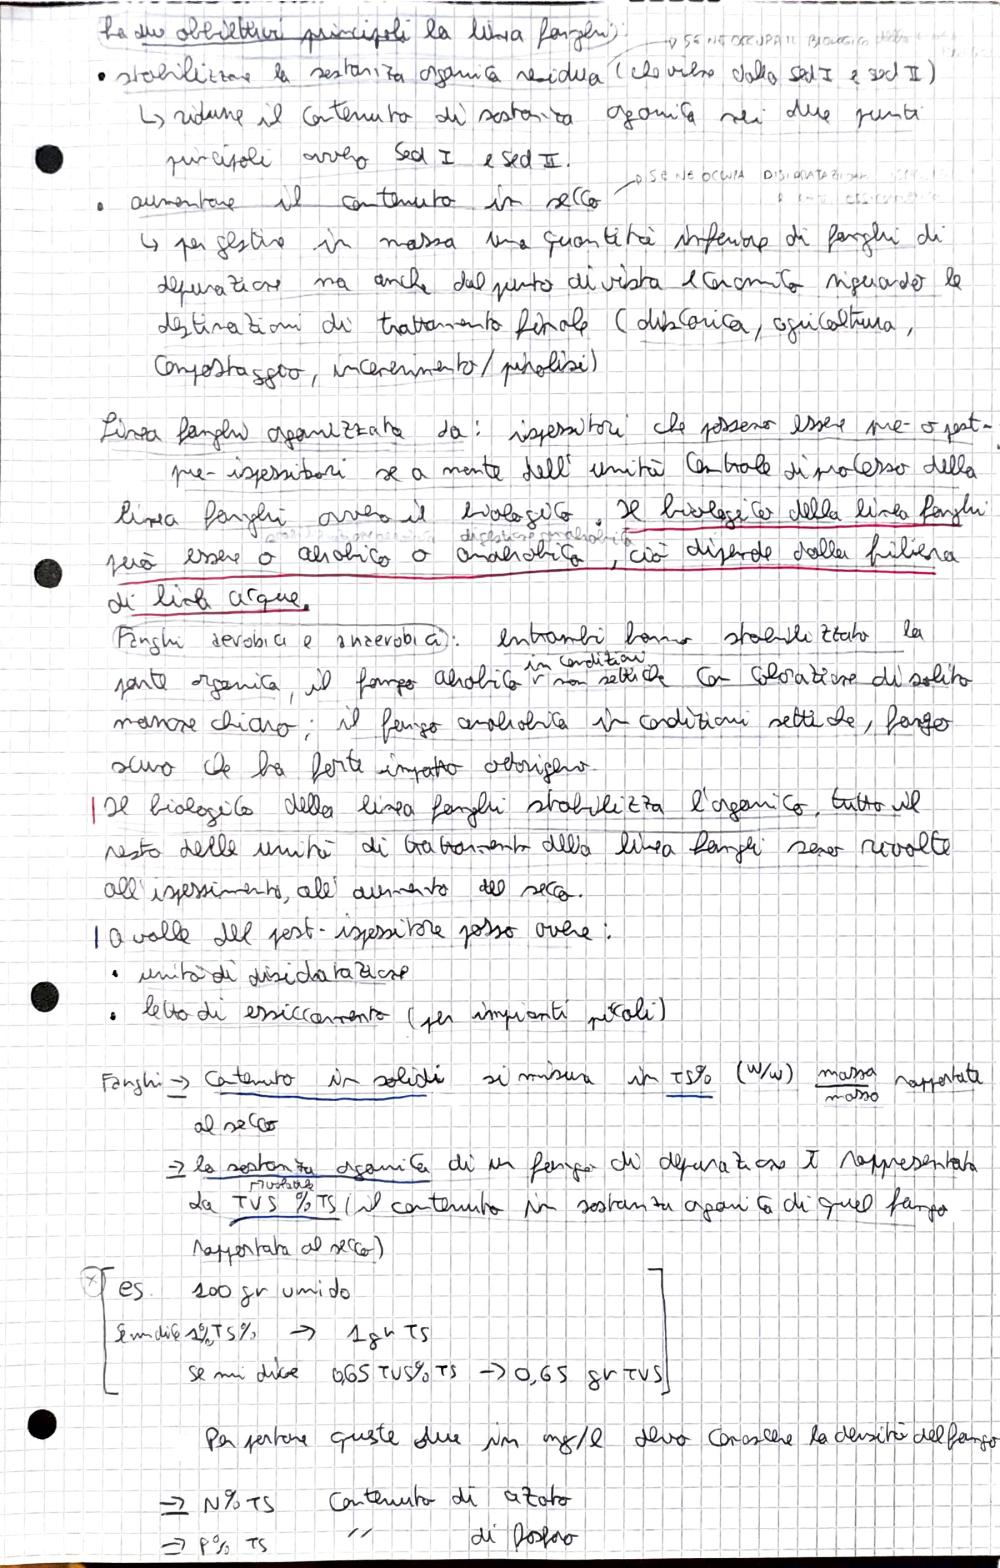 ha due obbiettivi principali la linea fanghi:
→ SE NE OCCUPA IL BIOLOGICO
• stabilizzare la sostanza organica residua (che viene dalla sed I e sed II)
↳ ridurre il contenuto di sostanza organica nei due punti
principali ovvero sed I e sed II.
→ SE NE OCCUPA DISIDRATAZIONE
• aumentare il contenuto in secco
↳ per gestire in massa una quantità inferiore di fanghi di
depurazione ma anche dal punto di vista economico riguardo le
destinazioni di trattamento finale (discarica, agricoltura,
compostaggio, incenerimento/pirolisi)
Linea fanghi organizzata da: ispessitori che possono essere pre- o post-
pre-ispessitori se a monte dell'unità centrale di processo della
linea fanghi ovvero il biologico. Il biologico della linea fanghi
digestione anaerobica
può essere o aerobico o anaerobico, ciò dipende dalla filiera
di linea acque.
Fanghi aerobici e anaerobici: entrambi hanno stabilizzato la
in condizioni
parte organica, il fango aerobico non settiche con colorazione di solito
marrone chiaro; il fango anaerobico in condizioni settiche, fango
scuro che ha forte impatto odorigeno.
Il biologico della linea fanghi stabilizza l'organico, tutto il
resto delle unità di trattamento della linea fanghi sono rivolte
all'ispessimento, all'aumento del secco.
A valle del post-ispessitore posso avere:
• unità di disidratazione
• letto di essiccamento (per impianti piccoli)
Fanghi → contenuto in solidi si misura in TS% (w/w) massa/massa rapportata
al secco
→ la sostanza organica di un fango di depurazione I rappresentata
da TVS %TS (il contenuto in sostanza organica di quel fango
rapportata al secco)
(x) es. 100 gr umido
se mi dice 1% TS% → 1 gr TS
se mi dice 0,65 TVS% TS → 0,65 gr TVS
Per portare queste due in mg/l devo conoscere la densità del fango
→ N% TS contenuto di azoto
→ P% TS " di fosforo